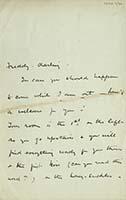 Freddy - darling -
In case you should happen
to come while I am out - here's
a welcome for you!
Your room is the 1st on the left
as you go upstairs & you will
find everything ready for you there
in the first floor (can you read this
word?), or the